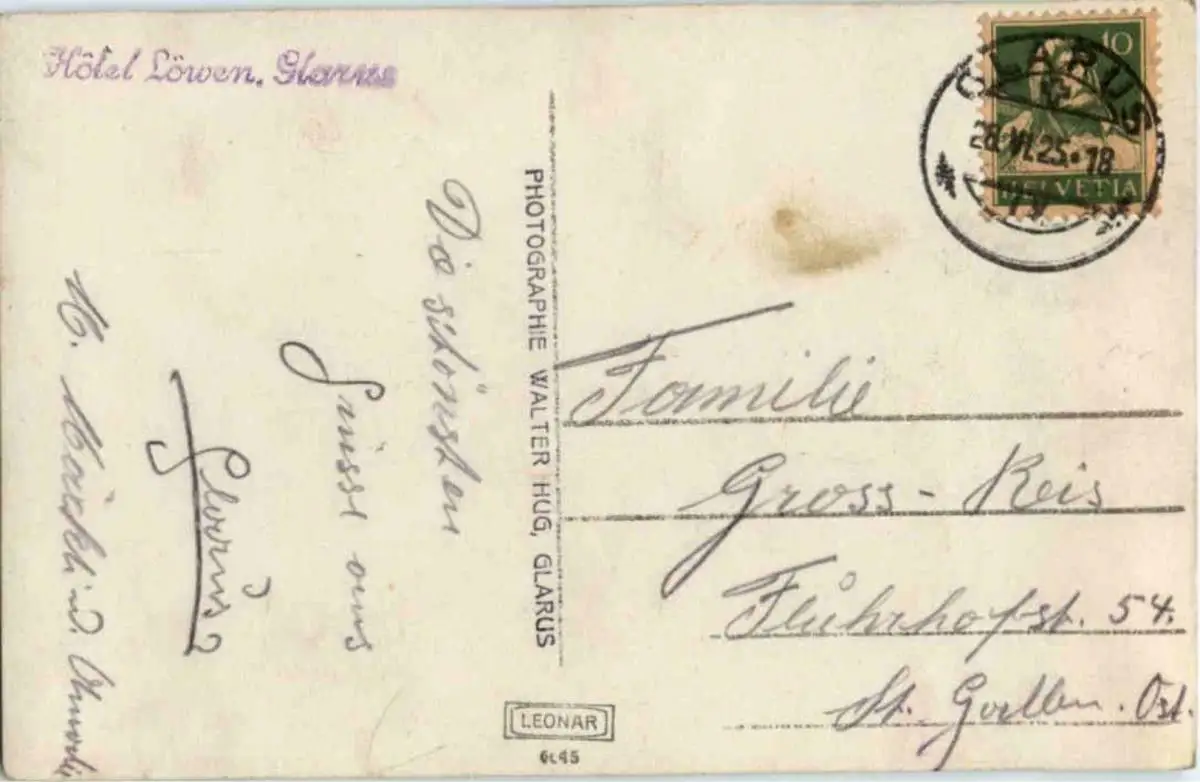 Hôtel Löwen, Glarus
Die schönsten
Grüsse aus
Glarus
PHOTOGRAPHIE WALTER HUG, GLARUS
LEONAR
6645
10
HELVETIA
GLARUS
28.VI.25.18
Familie
Gross-Reis
Flührhofst. 54.
St. Gallen. Ost.